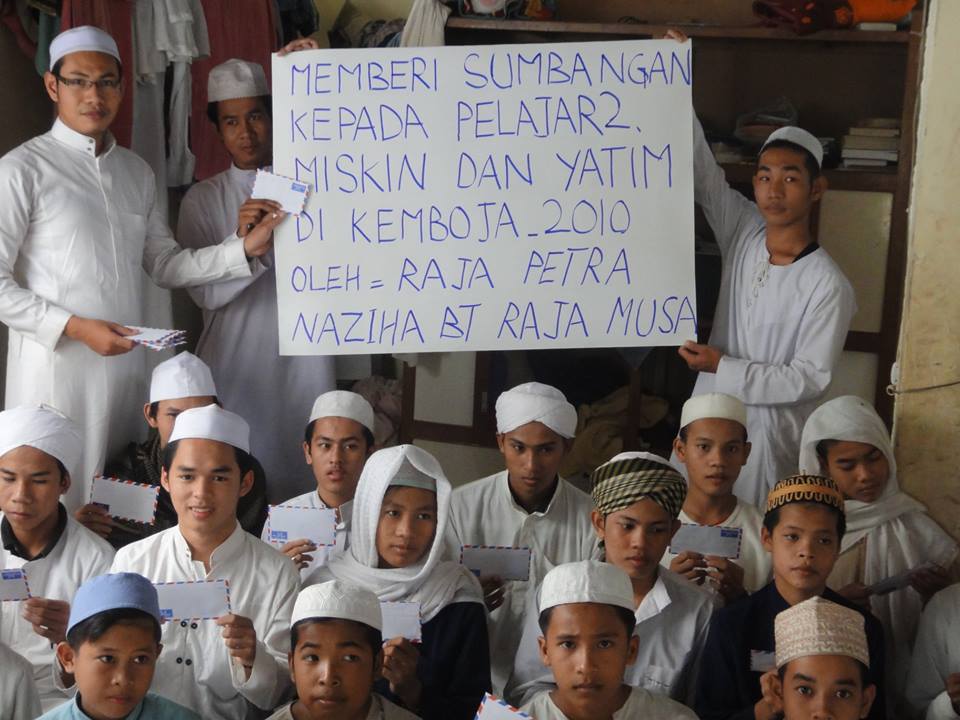 MEMBERI SUMBANGAN
KEPADA PELAJAR2.
MISKIN DAN YATIM
DI KEMBOJA_2010
OLEH = RAJA PETRA
NAZIHA BT RAJA MUSA